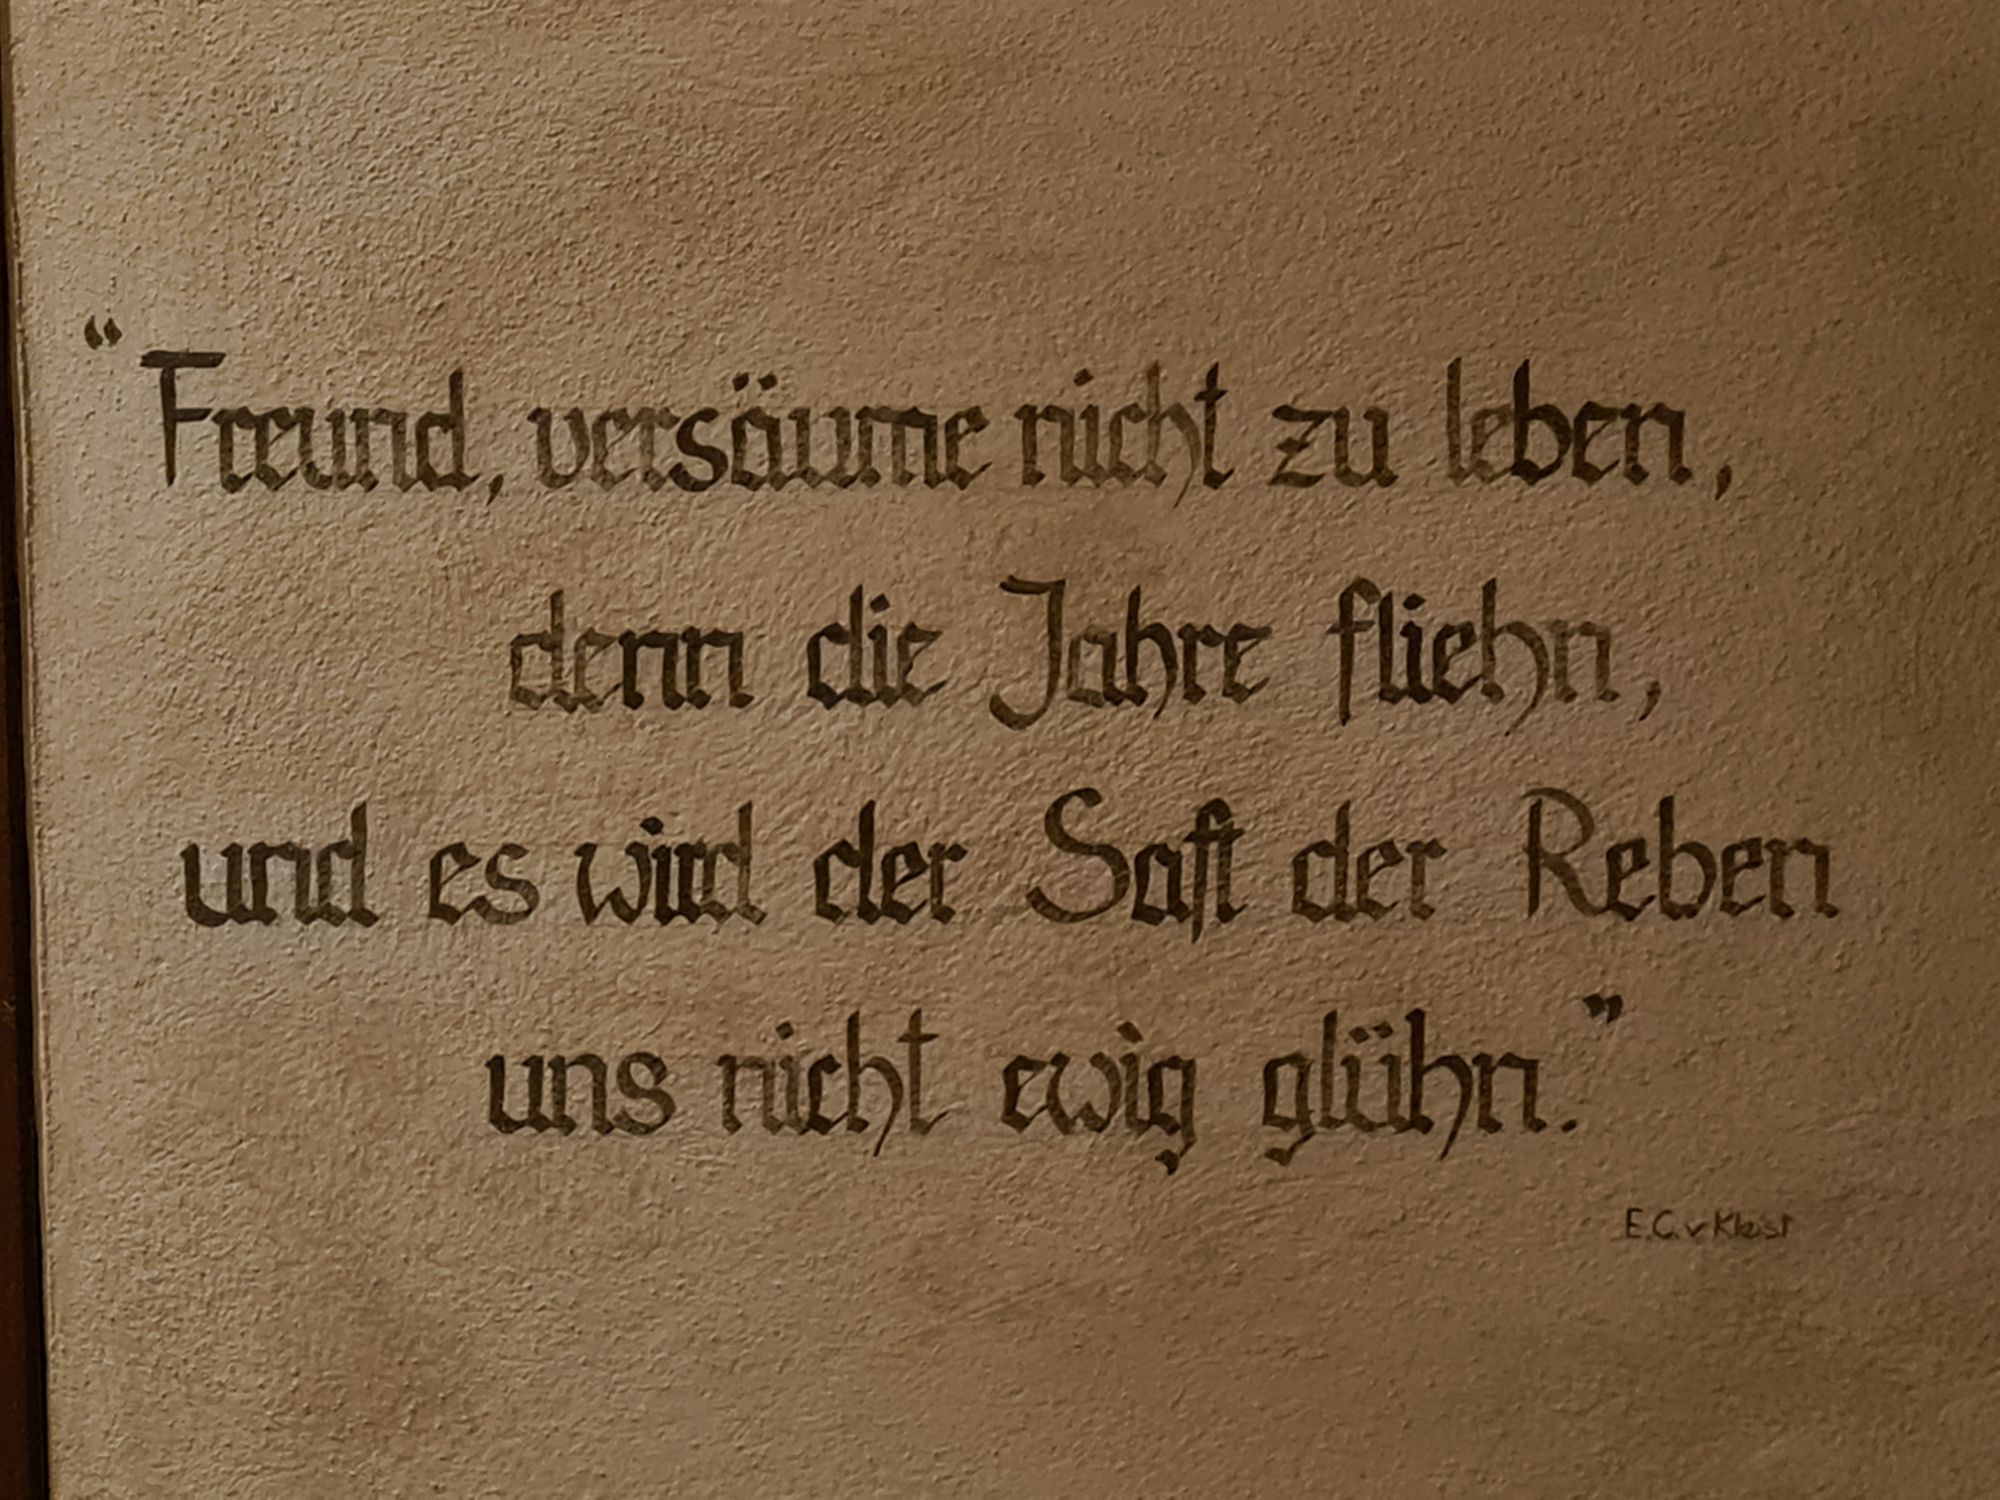 “Freund, versäume nicht zu leben,
denn die Jahre fliehn,
und es wird der Saft der Reben
uns nicht ewig glühn.”
E.C. v Kleist